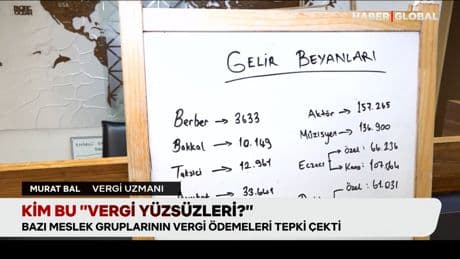 HABER GLOBAL
GELİR BEYANLARI
Berber → 3633
Bakkal → 10.149
Taksici → 12.961
33.661
Aktör → 157.265
Müzisyen → 136.900
Eczacı → özel: 66.236
Kamu: 107.064
özel: 61.031
MURAT BAL VERGİ UZMANI
KİM BU "VERGİ YÜZSÜZLERİ?"
BAZI MESLEK GRUPLARININ VERGİ ÖDEMELERİ TEPKİ ÇEKTİ